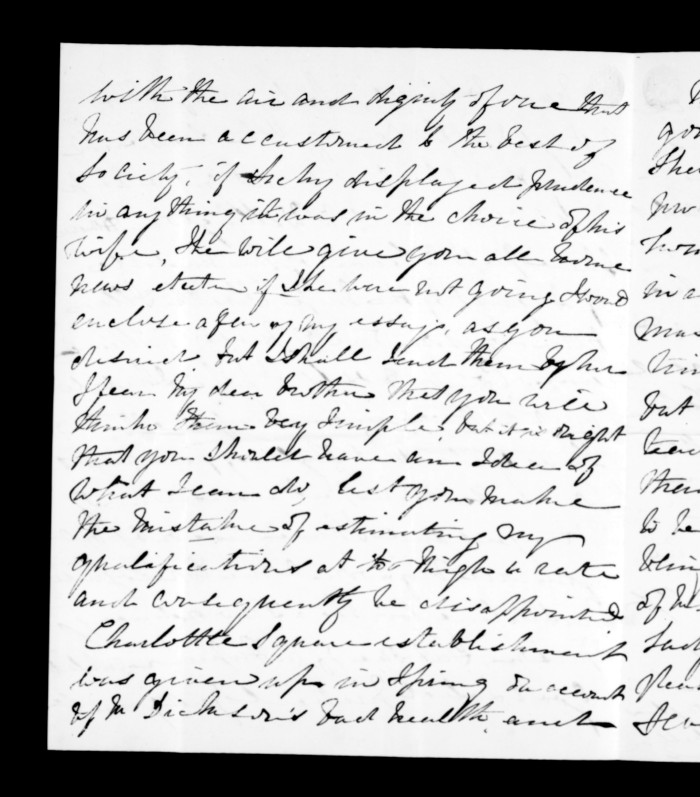 with the air and dignity of one that
has been accustomed to the best of
Society, if displayed prudence
in any thing it was in the choice of his
wife, She will give you all home
news if She were not going I would
enclose a few of my essays, as you
desired but I shall send them by her
I fear my dear brother that you will
think them very simple, but it is right
that you should have an Idea of
what I can do, lest you make
the mistake of estimating my
qualifications at too high a rate
and consequently be disappointed
Charlotte Square establishment
was given up in Spring on account
of Mr Dickson's bad health, and